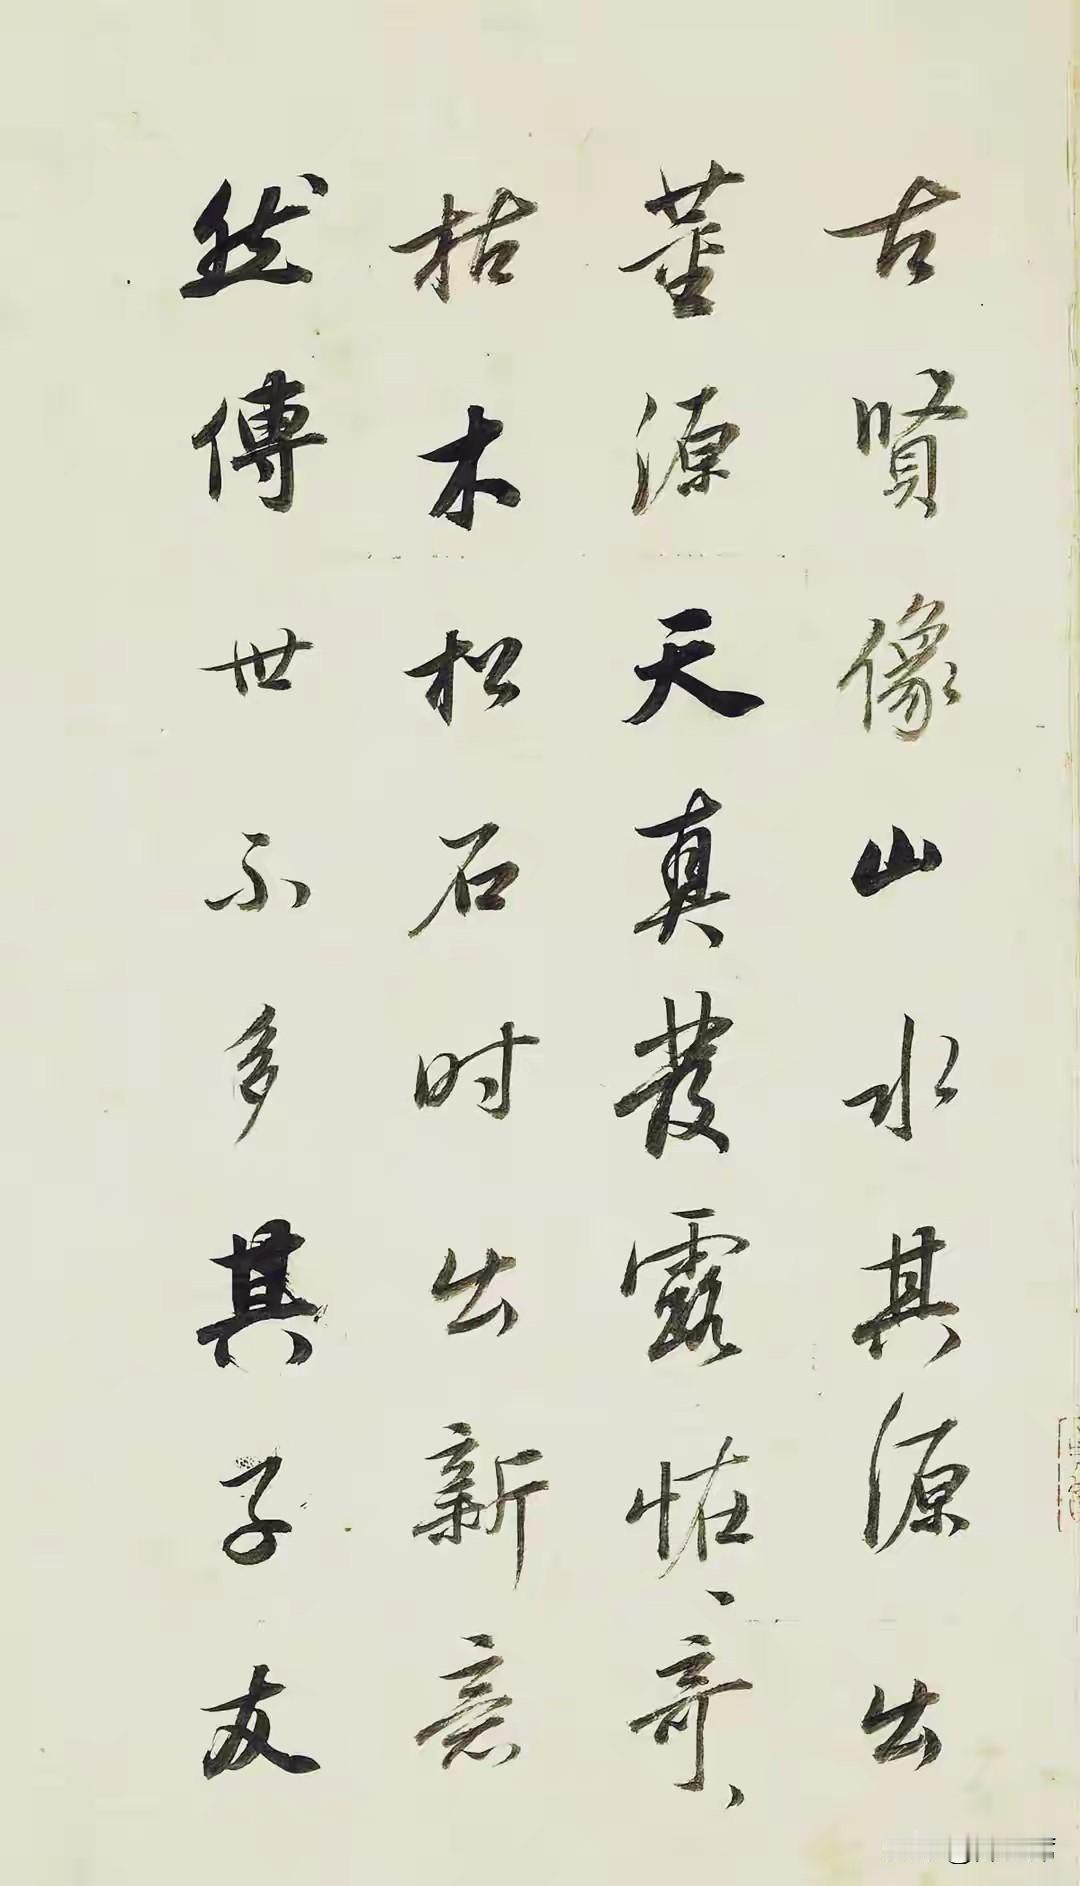 古賢像山水其源出
董源天真發露怪、奇、
枯木松石时出新意
然傳世不多其子友